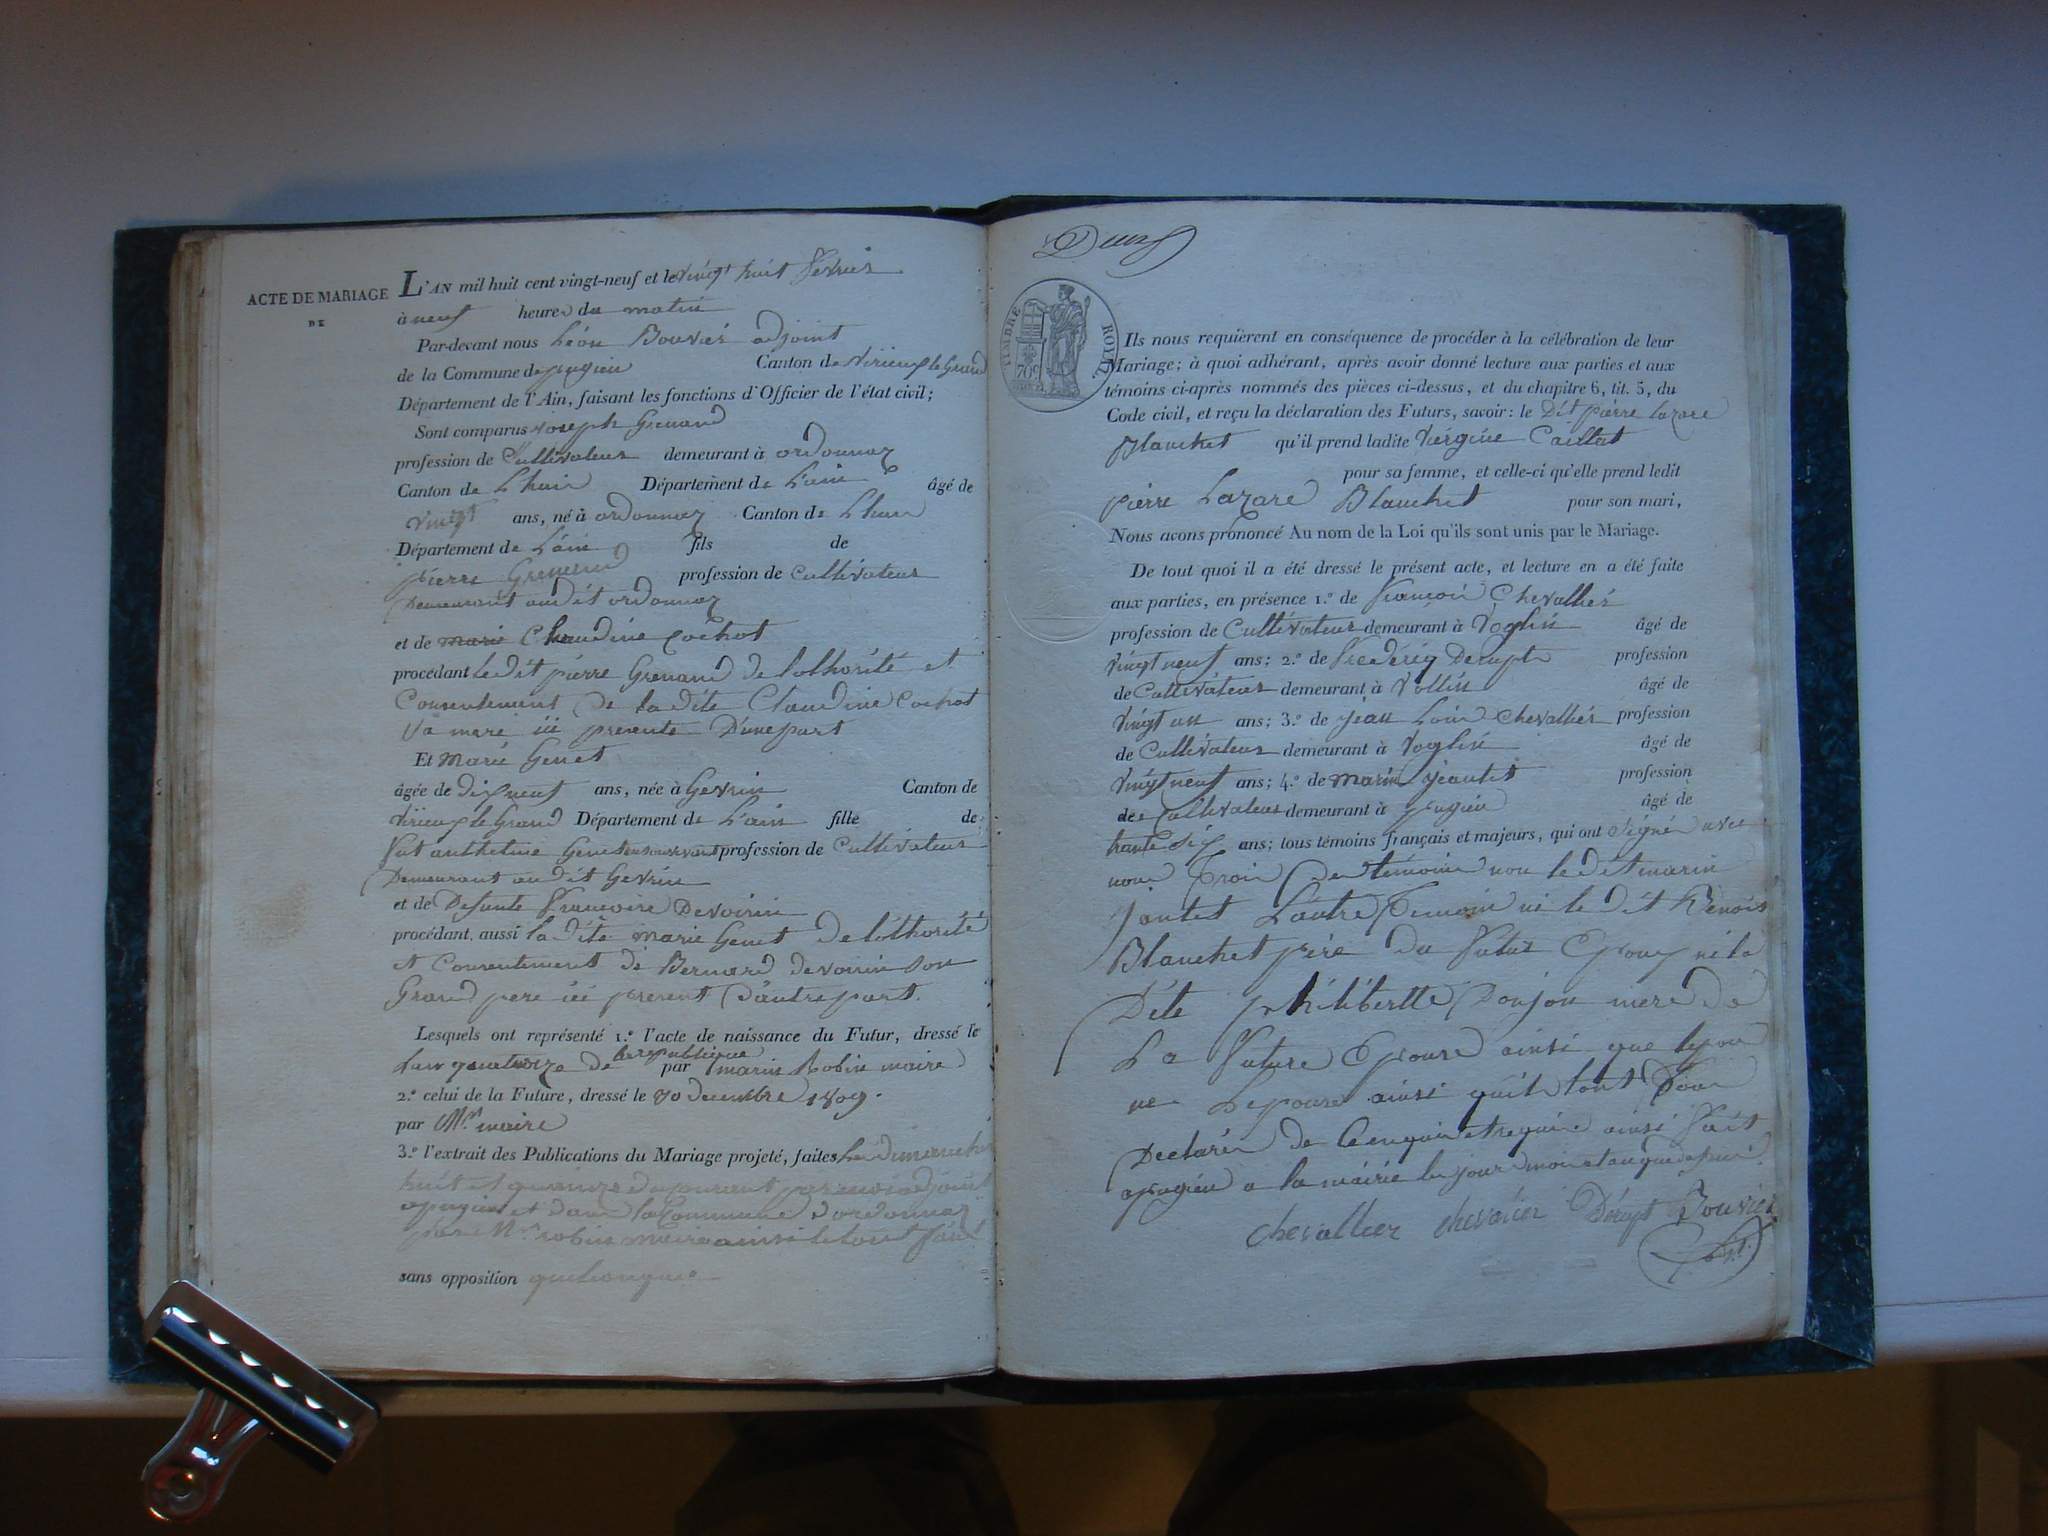 ACTE DE MARIAGE
DE
L'AN mil huit cent vingt-neuf et le vingt huit fevrier
à neuf heures du matin
Par-devant nous Léon Bouvier adjoint
de la Commune de pugieu Canton de Virieux le Grand
Département de l'Ain, faisant les fonctions d'Officier de l'état civil;
Sont comparus joseph Grenand
profession de Cultivateur demeurant à ordonnaz
Canton de Lhuis Département de L'ain âgé de
vingt ans, né à ordonnaz Canton de Lhuis
Département de L'ain fils de
pierre Grenand profession de Cultivateur
Demeurant audit ordonnaz
et de marie Claudine Cochot
procédant Le dit pierre Grenand de lothorité et
Consentement de la dite Claudine Cochot
Sa mere ici presente D'une part
Et Marie Genet
âgée de dix neuf ans, née à Gevrin Canton de
Virieux le Grand Département de L'ain fille de
profession de Cultivateur
Demeurant au dit Gevrin
et de Defunte francoise Devoirin
procédant aussi la dite marie Genet de lothorité
et Consentement de Bernard devoirin son
Grand pere ici present d'autre part.
Lesquels ont représenté 1.º l'acte de naissance du Futur, dressé le
Lan quatorze de la republique par marin Robin maire
2.º celui de la Future, dressé le 30 decembre 1809.
par Mr. maire
3.º l'extrait des Publications du Mariage projeté, faites Les dimanche
huit et quinze du courant par adjoint
a pugieu et dans la Commune d'ordonnaz
par Mr robin maire ainsi le tout fait
sans opposition quelconque
Deux
TIMBRE ROYAL
70c
Ils nous requièrent en conséquence de procéder à la célébration de leur
Mariage; à quoi adhérant, après avoir donné lecture aux parties et aux
témoins ci-après nommés des pièces ci-dessus, et du chapitre 6, tit. 5, du
Code civil, et reçu la déclaration des Futurs, savoir: le Dit pierre lazare
Blanchet qu'il prend ladite Virginie Caillat
pour sa femme, et celle-ci qu'elle prend ledit
pierre Lazare Blanchet pour son mari,
Nous avons prononcé Au nom de la Loi qu'ils sont unis par le Mariage.
De tout quoi il a été dressé le présent acte, et lecture en a été faite
aux parties, en présence 1.º de francois Chevallier
profession de Cultivateur demeurant à Voglin âgé de
vingt neuf ans; 2.º de frederiq Decrupt profession
de Cultivateur demeurant à Vollin âgé de
vingt un ans; 3.º de jean Loui Chevallier profession
de Cultivateur demeurant à Voglin âgé de
vingt neuf ans; 4.º de marin jeantet profession
de Cultivateur demeurant à pugieu âgé de
trente six ans; tous témoins français et majeurs, qui ont signé avec
nous Trois des témoins non le dit marin
jantet L'autre temoin ni le dit Benois
Blanchet père du futur Epoux ni la
Dite philibertte Donjon mere de
La future Epouse ainsi que lepou
ne Lepouse ainsi quils lont tous
Declarés de ce enquis et requis ainsi fait
a pugieu a la mairie les jour mois et an que dessus
chevallier chevalier Décrupt Bouvier
adjt.